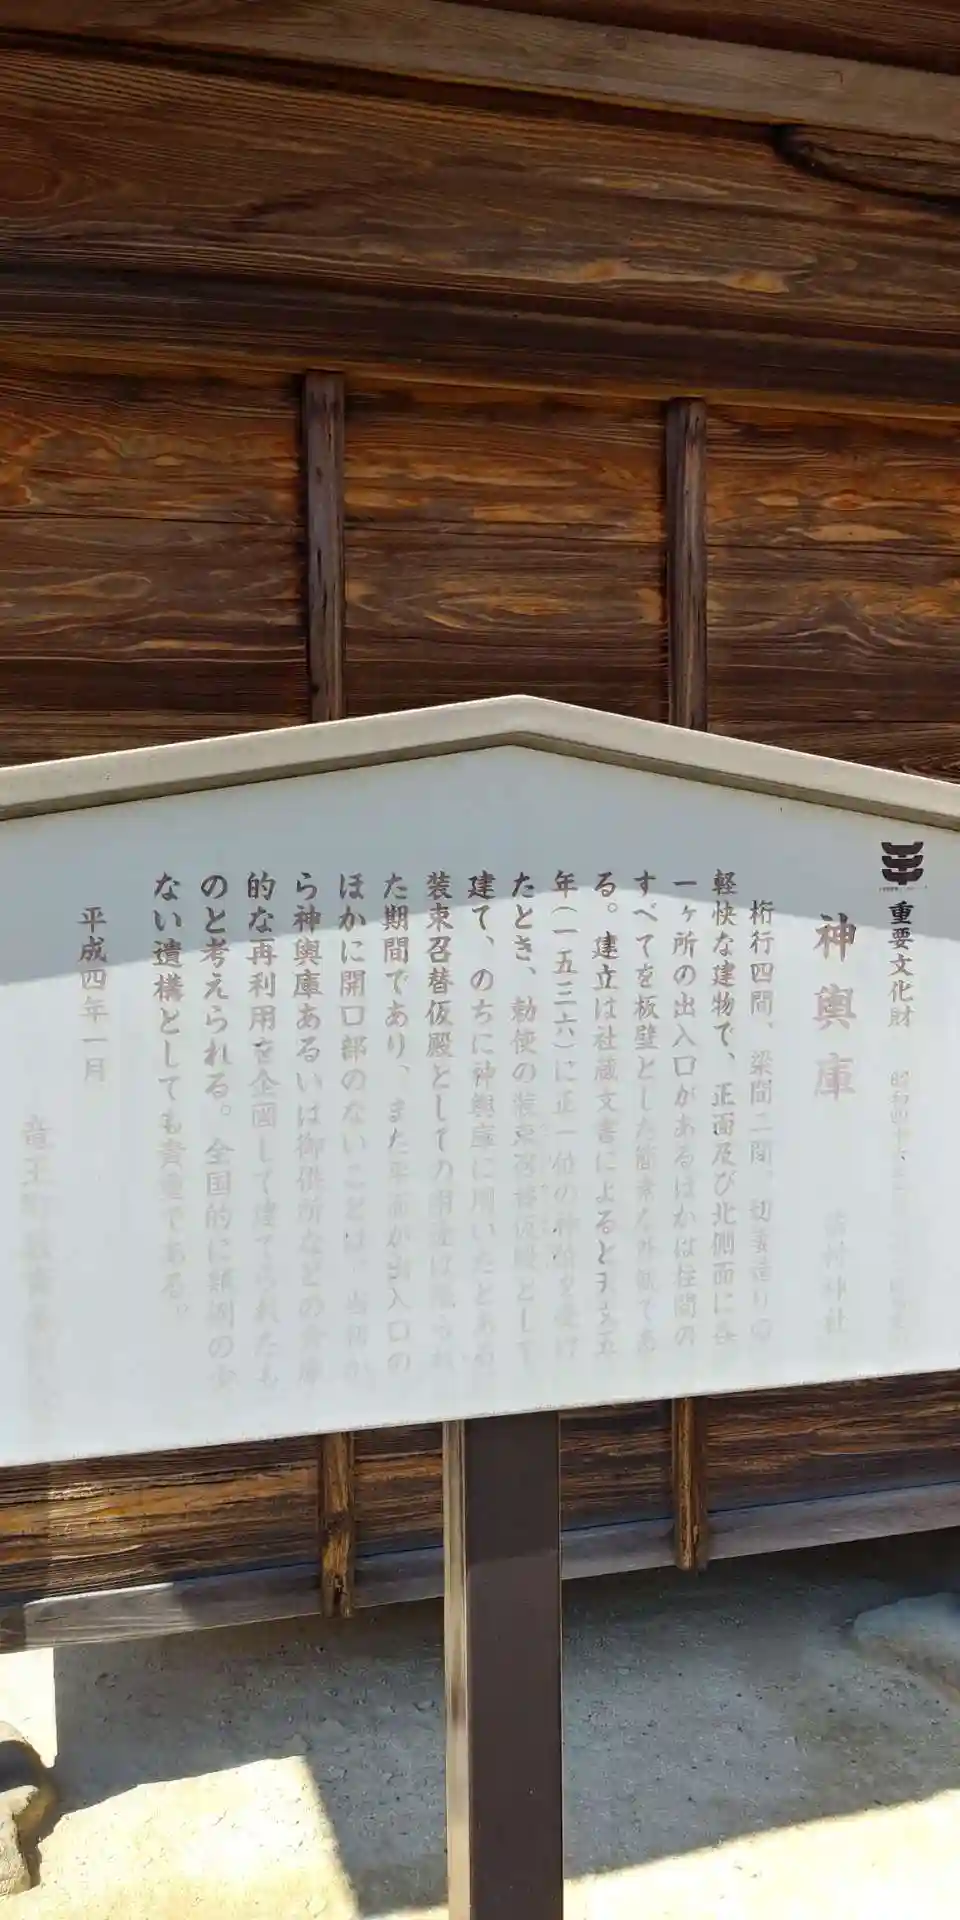 重要文化財
神輿庫 苗村神社
桁行四間、梁間二間、切妻造りの
軽快な建物で、正面及び北側面に各
一ヶ所の出入口があるほかは柱間の
すべてを板壁とした簡素な外観であ
る。建立は社蔵文書によると天文五
年(一五三六)に正一位の神位を受け
たとき、勅使の装束召替仮殿として
建て、のちに神輿庫に用いたとある
装束召替仮殿としての用途は限られ
た期間であり、また正面が出入口の
ほかに開口部のないことは、当初か
ら神輿庫あるいは御供所などの倉庫
的な再利用を企図して建てられたも
のと考えられる。全国的に類例の少
ない遺構としても貴重である。
平成四年一月
竜王町教育委員会